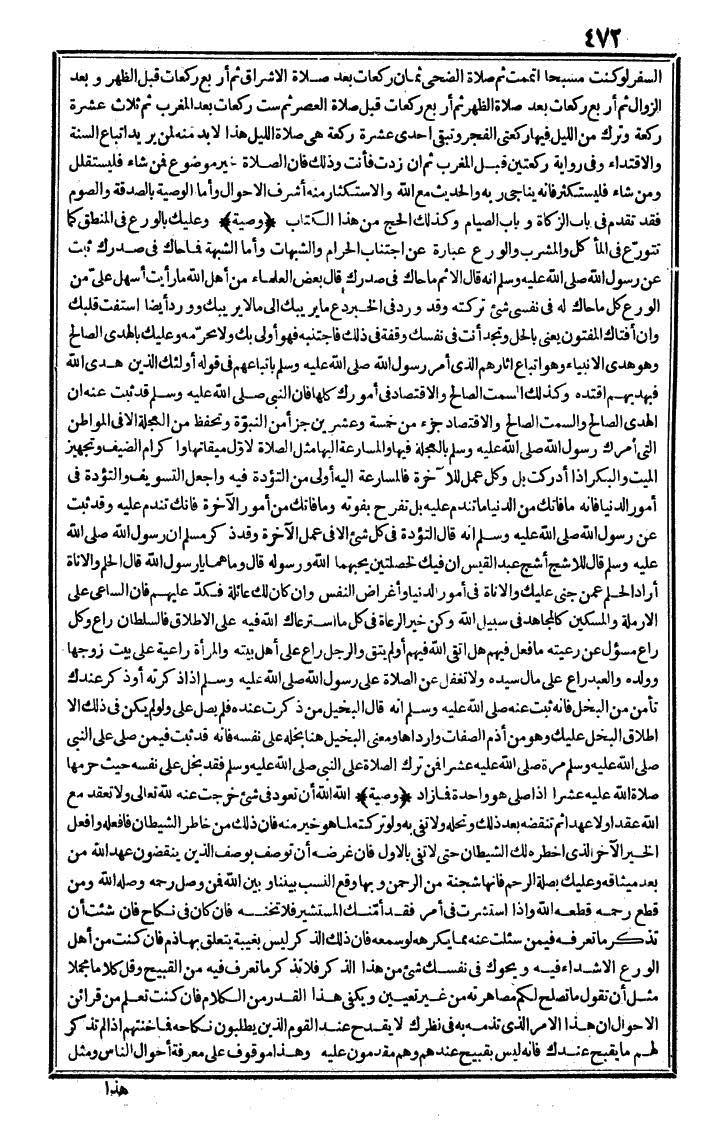 ٤٧٢
السفر لو كنت مسبحا اتممت ثم صلاة الضحى ثمان ركعات بعد صلاة الاشراق ثم أربع ركعات قبل الظهر وبعد
الزوال ثم أربع ركعات بعد صلاة الظهر ثم أربع ركعات قبل صلاة العصر ثم ست ركعات بعد المغرب ثم ثلاث عشرة
ركعة وترك من الليل فيها ركعتى الفجر وتبقى احدى عشرة ركعة هى صلاة الليل هذا لا بد منه لمن يريد اتباع السنة
والاقتداء وفى رواية ركعتين قبل المغرب ثم ان زدت فأنت وذلك فان الصلاة خير موضوع فمن شاء فليستقلل
ومن شاء فليستكثر فانه يناجى ربه والحديث مع الله والاستكثار منه أشرف الاحوال وأما الوصية بالصدقة والصوم
فقد تقدم فى باب الزكاة وباب الصيام وكذلك الحج من هذا الكتاب ﴿وصية﴾ وعليك بالورع فى المنطق كما
تتورّع فى المأكل والمشرب والورع عبارة عن اجتناب الحرام والشبهات وأما الشبهة فما حاك فى صدرك ثبت
عن رسول الله صلى الله عليه وسلم انه قال الاثم ما حاك فى صدرك قال بعض العلماء من أهل الله ما رأيت أسهل علىّ من
الورع كل ما حاك له فى نفسى شئ تركته وقد ورد فى الخبر دع ما يريبك الى مالا يريبك وورد أيضا استفت قلبك
وان أفتاك المفتون يعنى بالحل وتجد أنت فى نفسك وقفة فى ذلك فاجتنبه فهو أولى بك ولا محرّمه وعليك بالهدى الصالح
وهو هدى الانبياء وهو اتباع اثارهم الذى أمر رسول الله صلى الله عليه وسلم باتباعهم فى قوله أولئك الذين هدى الله
فبهديهم اقتده وكذلك السمت الصالح والاقتصاد فى أمورك كلها فان النبى صلى الله عليه وسلم قد ثبت عنه ان
الهدى الصالح والسمت الصالح والاقتصاد جزء من خمسة وعشرين جزأ من النبوّة وتحفظ من العجلة الا فى المواطن
التى أمرك رسول الله صلى الله عليه وسلم بالعجلة فيها والمسارعة اليها مثل الصلاة لاوّل ميقاتها واكرام الضيف وتجهيز
الميت والبكر اذا أدركت بل وكل عمل للآخرة فالمسارعة اليه أولى من التؤدة فيه واجعل التسويف والتؤدة فى
أمور الدنيا فانه ما فاتك من الدنيا ما تندم عليه بل تفرح بفوته وما فاتك من أمور الآخرة فانك تندم عليه وقد ثبت
عن رسول الله صلى الله عليه وسلم انه قال التؤدة فى كل شئ الا فى عمل الآخرة وقد ذكر مسلم ان رسول الله صلى الله
عليه وسلم قال للاشج أشج عبد القيس ان فيك خصلتين يحبهما الله ورسوله قال وما هما يا رسول الله قال الحلم والاناة
أراد الحلم عمن جنى عليك والاناة فى أمور الدنيا وأغراض النفس وان كان لك عائلة فكدّ عليهم فان الساعى على
الارملة والمسكين كالمجاهد فى سبيل الله وكن خير الرعاة فى كل ما استرعاك الله فيه على الاطلاق فالسلطان راع وكل
راع مسؤل عن رعيته ما فعل فيهم هل اتقى الله فيهم أو لم يتق والرجل راع على أهل بيته والمرأة راعية على بيت زوجها
وولده والعبد راع على مال سيده ولا تغفل عن الصلاة على رسول الله صلى الله عليه وسلم اذا ذكرته أو ذكر عندك
تأمن من البخل فانه ثبت عنه صلى الله عليه وسلم انه قال البخيل من ذكرت عنده فلم يصل على ولو لم يكن فى ذلك الا
اطلاق البخل عليك وهو من أذم الصفات وارداها ومعنى البخيل هنا بخله على نفسه فانه قد ثبت فيمن صلى على النبى
صلى الله عليه وسلم مرة صلى الله عليه عشرا فمن ترك الصلاة على النبى صلى الله عليه وسلم فقد بخل على نفسه حيث حرمها
صلاة الله عليه عشرا اذا صلى هو واحدة فما زاد ﴿وصية﴾ الله الله أن تعود فى شئ خرجت عنه لله تعالى ولا تعقد مع
الله عقدا ولا عهدا ثم تنقضه بعد ذلك وتحله ولا تفى به ولو تركته لما هو خير منه فان ذلك من خاطر الشيطان فافعله وافعل
الخير الآخر الذى اخطره لك الشيطان حتى لا تفى بالاول فان غرضه أن توصف بوصف الذين ينقضون عهد الله من
بعد ميثاقه وعليك بصلة الرحم فانها شجنة من الرحمن وبها وقع النسب بيننا وبين الله فمن وصل رحمه وصله الله ومن
قطع رحمه قطعه الله واذا استشرت فى أمر فقد أمّنك المستشير فلا تخنه فان كان فى نكاح فان شئت أن
تذكر ما تعرفه فيمن سئلت عنه مما يكرهه لو سمعه فان ذلك الذكر ليس بغيبة يتعلق بها ذم فان كنت من أهل
الورع الاشداء فيه ويحوك فى نفسك شئ من هذا الذكر فلا تذكر ما تعرف فيه من القبيح وقل كلاما مجملا
مثل أن تقول ما تصلح لكم مصاهرته من غير تعيين ويكفى هذا القدر من الكلام فان كنت تعلم من قرائن
الاحوال ان هذا الامر الذى تذمه به فى نظرك لا يقدح عند القوم الذين يطلبون نكاحه فما خنتهم اذا لم تذكر
لهم ما يقبح عندك فانه ليس بقبيح عندهم وهم مقدمون عليه وهذا موقوف على معرفة أحوال الناس ومثل
هذا